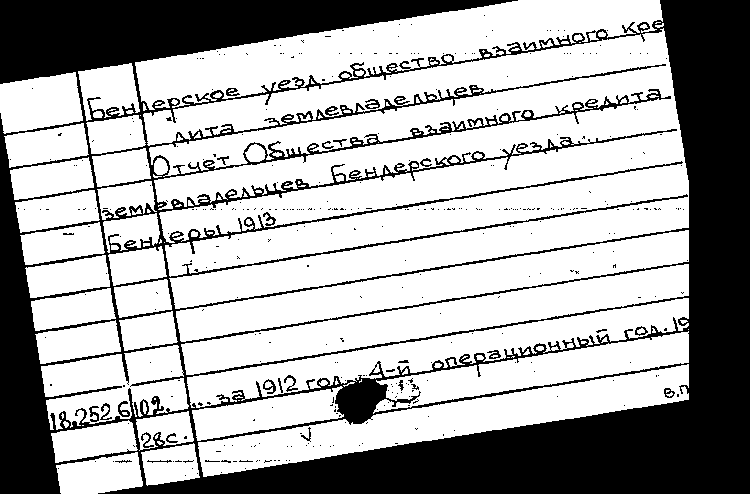 Бендерское уезд. общество взаимного кре
дита землевладельцев.
Отчет Общества взаимного кредита
землевладельцев Бендерского уезда...
Бендеры, 1913
т.
... за 1912 год. 4-й операционный год. 19
18.252.6102.
28с.
в.п